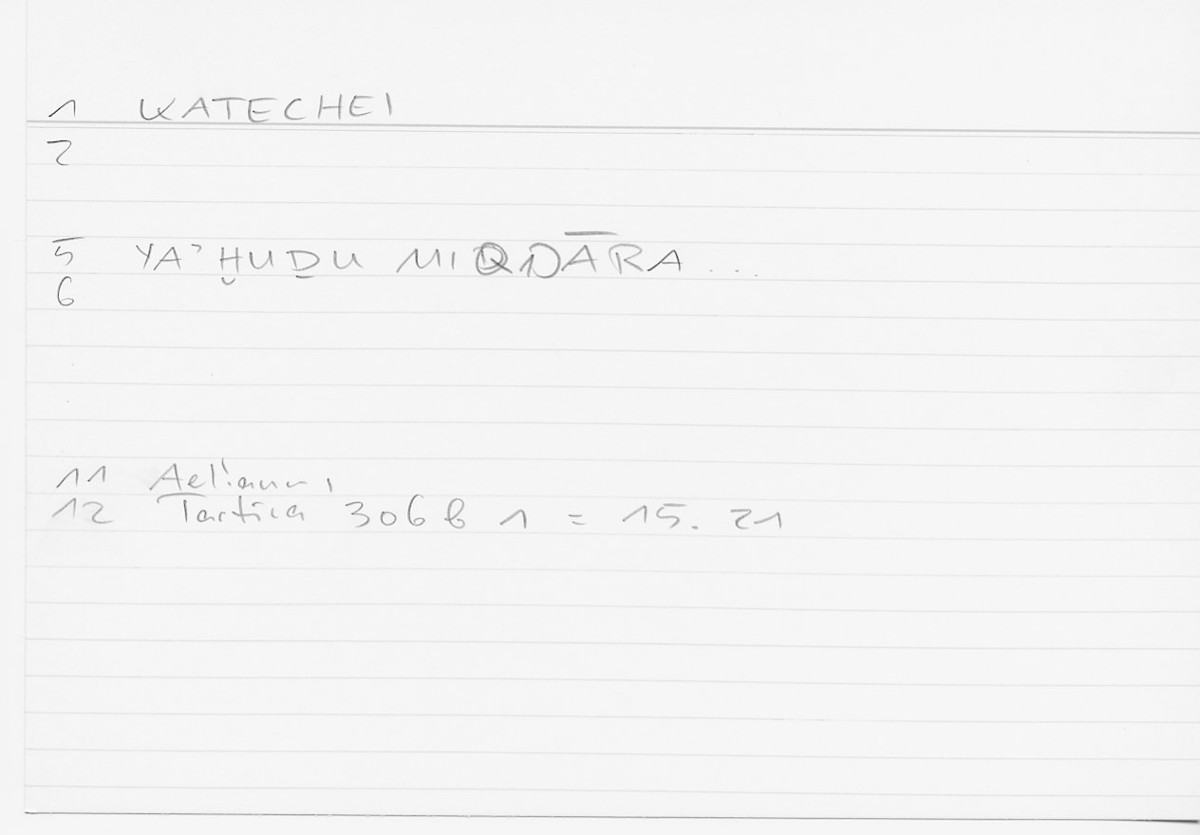 1 KATECHEI
2
5 YA'ḪUḎU MIQDĀRA ...
6
11 Aelianus,
12 Tactica 306 b 1 = 15. 21